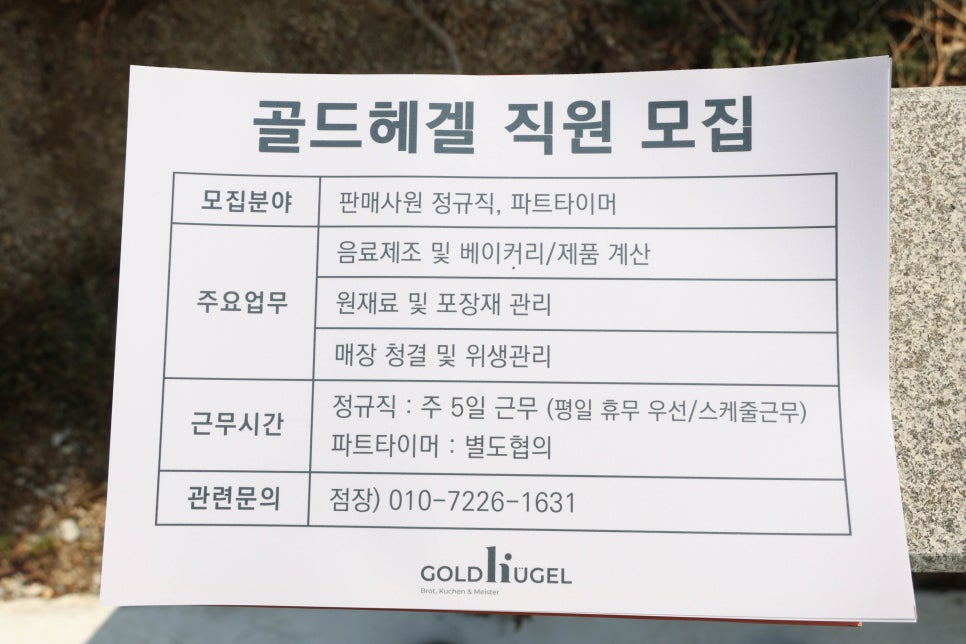 골드헤겔 직원 모집
모집분야 판매사원 정규직, 파트타이머
음료제조 및 베이커리/제품 계산
주요업무 원재료 및 포장재 관리
매장 청결 및 위생관리
근무시간 정규직 : 주 5일 근무 (평일 휴무 우선/스케줄근무)
파트타이머 : 별도협의
관련문의 점장) 010-7226-1631
GOLD HÜGEL
Brot, Kuchen & Meister